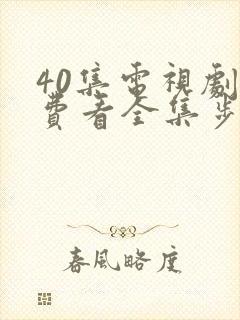 40集電視劇
費看全集步
春風略度